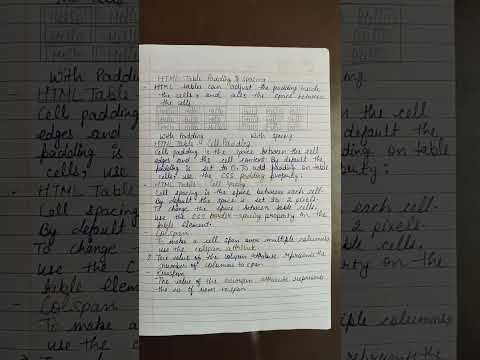 HTML Table Padding & Spacing
- HTML tables can adjust the padding inside
the cells, and also the space between
the cells.
With Padding With Spacing
HTML Table - Cell Padding
Cell padding is the space between the cell
edges and the cell content. By default the
padding is set to 0. To add padding on table
cells, use the CSS padding property:
- HTML Table - Cell Spacing
Cell spacing is the space between each cell.
By default the space is set to 2 pixels.
To change the space between table cells,
use the CSS border-spacing property on the
table element.
Colspan
To make a cell span over multiple columns
use the colspan attribute
The value of the colspan attribute represents the
number of columns to span
- Rowspan
The value of the rowspan attribute represents
the no of rows to span